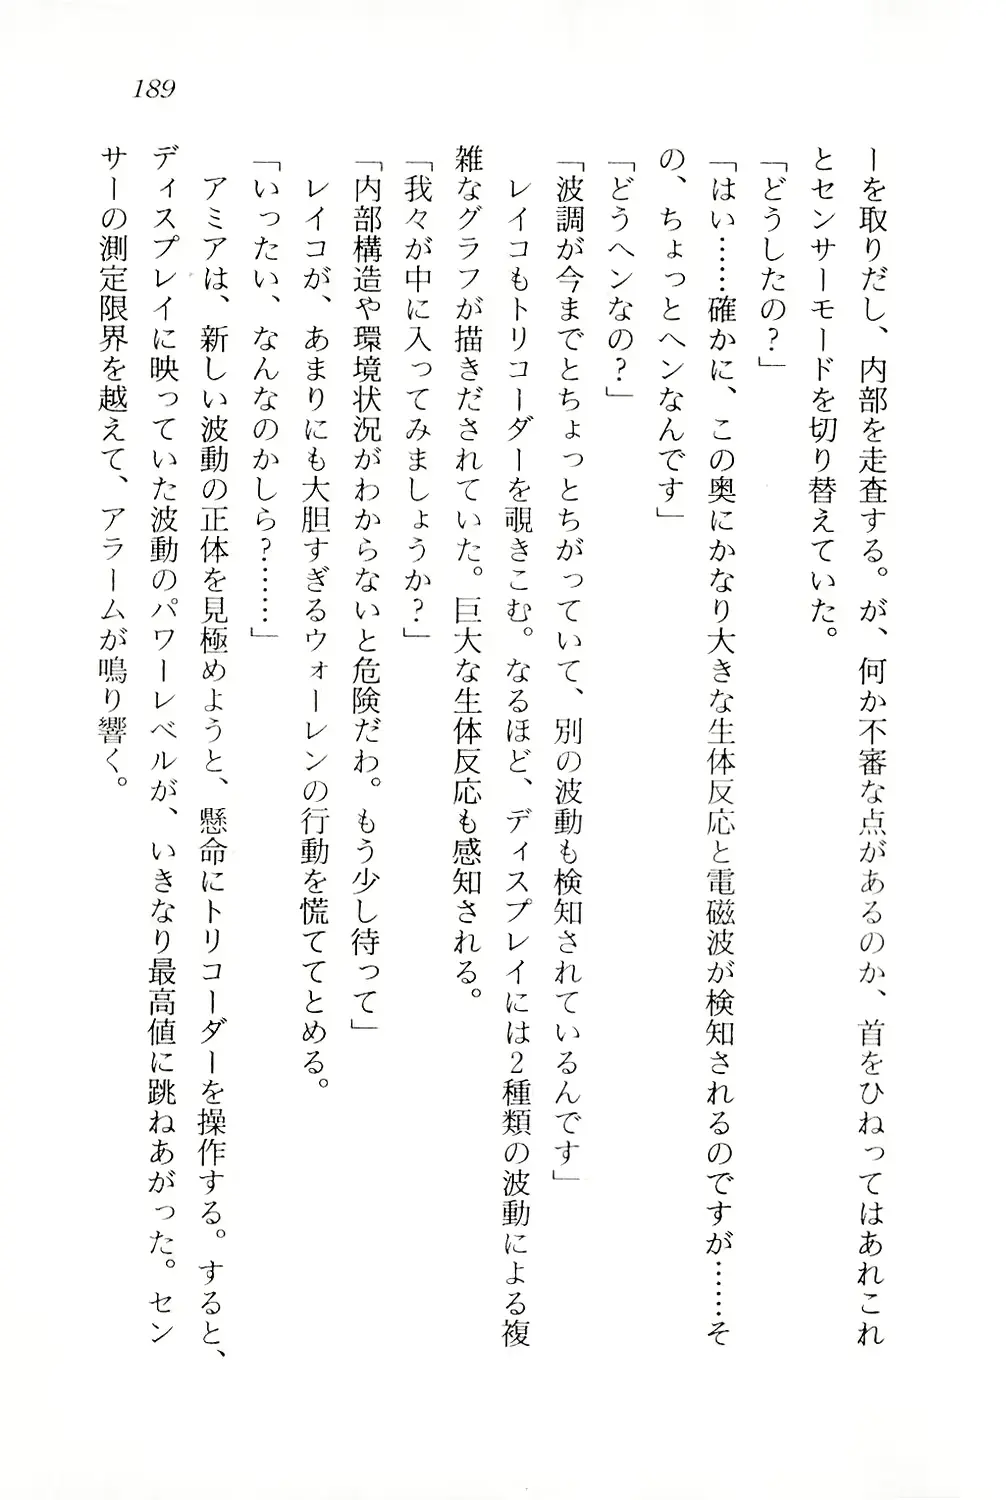 189
ーを取りだし、内部を走査する。が、何か不審な点があるのか、首をひねってはあれこれ
とセンサーモードを切り替えていた。
「どうしたの？」
「はい……確かに、この奥にかなり大きな生体反応と電磁波が検知されるのですが……そ
の、ちょっとヘンなんです」
「どうヘンなの？」
「波調が今までとちょっとちがっていて、別の波動も検知されているんです」
　レイコもトリコーダーを覗きこむ。なるほど、ディスプレイには２種類の波動による複
雑なグラフが描きだされていた。巨大な生体反応も感知される。
「我々が中に入ってみましょうか？」
「内部構造や環境状況がわからないと危険だわ。もう少し待って」
　レイコが、あまりにも大胆すぎるウォーレンの行動を慌ててとめる。
「いったい、なんなのかしら？……」
　アミアは、新しい波動の正体を見極めようと、懸命にトリコーダーを操作する。すると、
ディスプレイに映っていた波動のパワーレベルが、いきなり最高値に跳ねあがった。セン
サーの測定限界を越えて、アラームが鳴り響く。